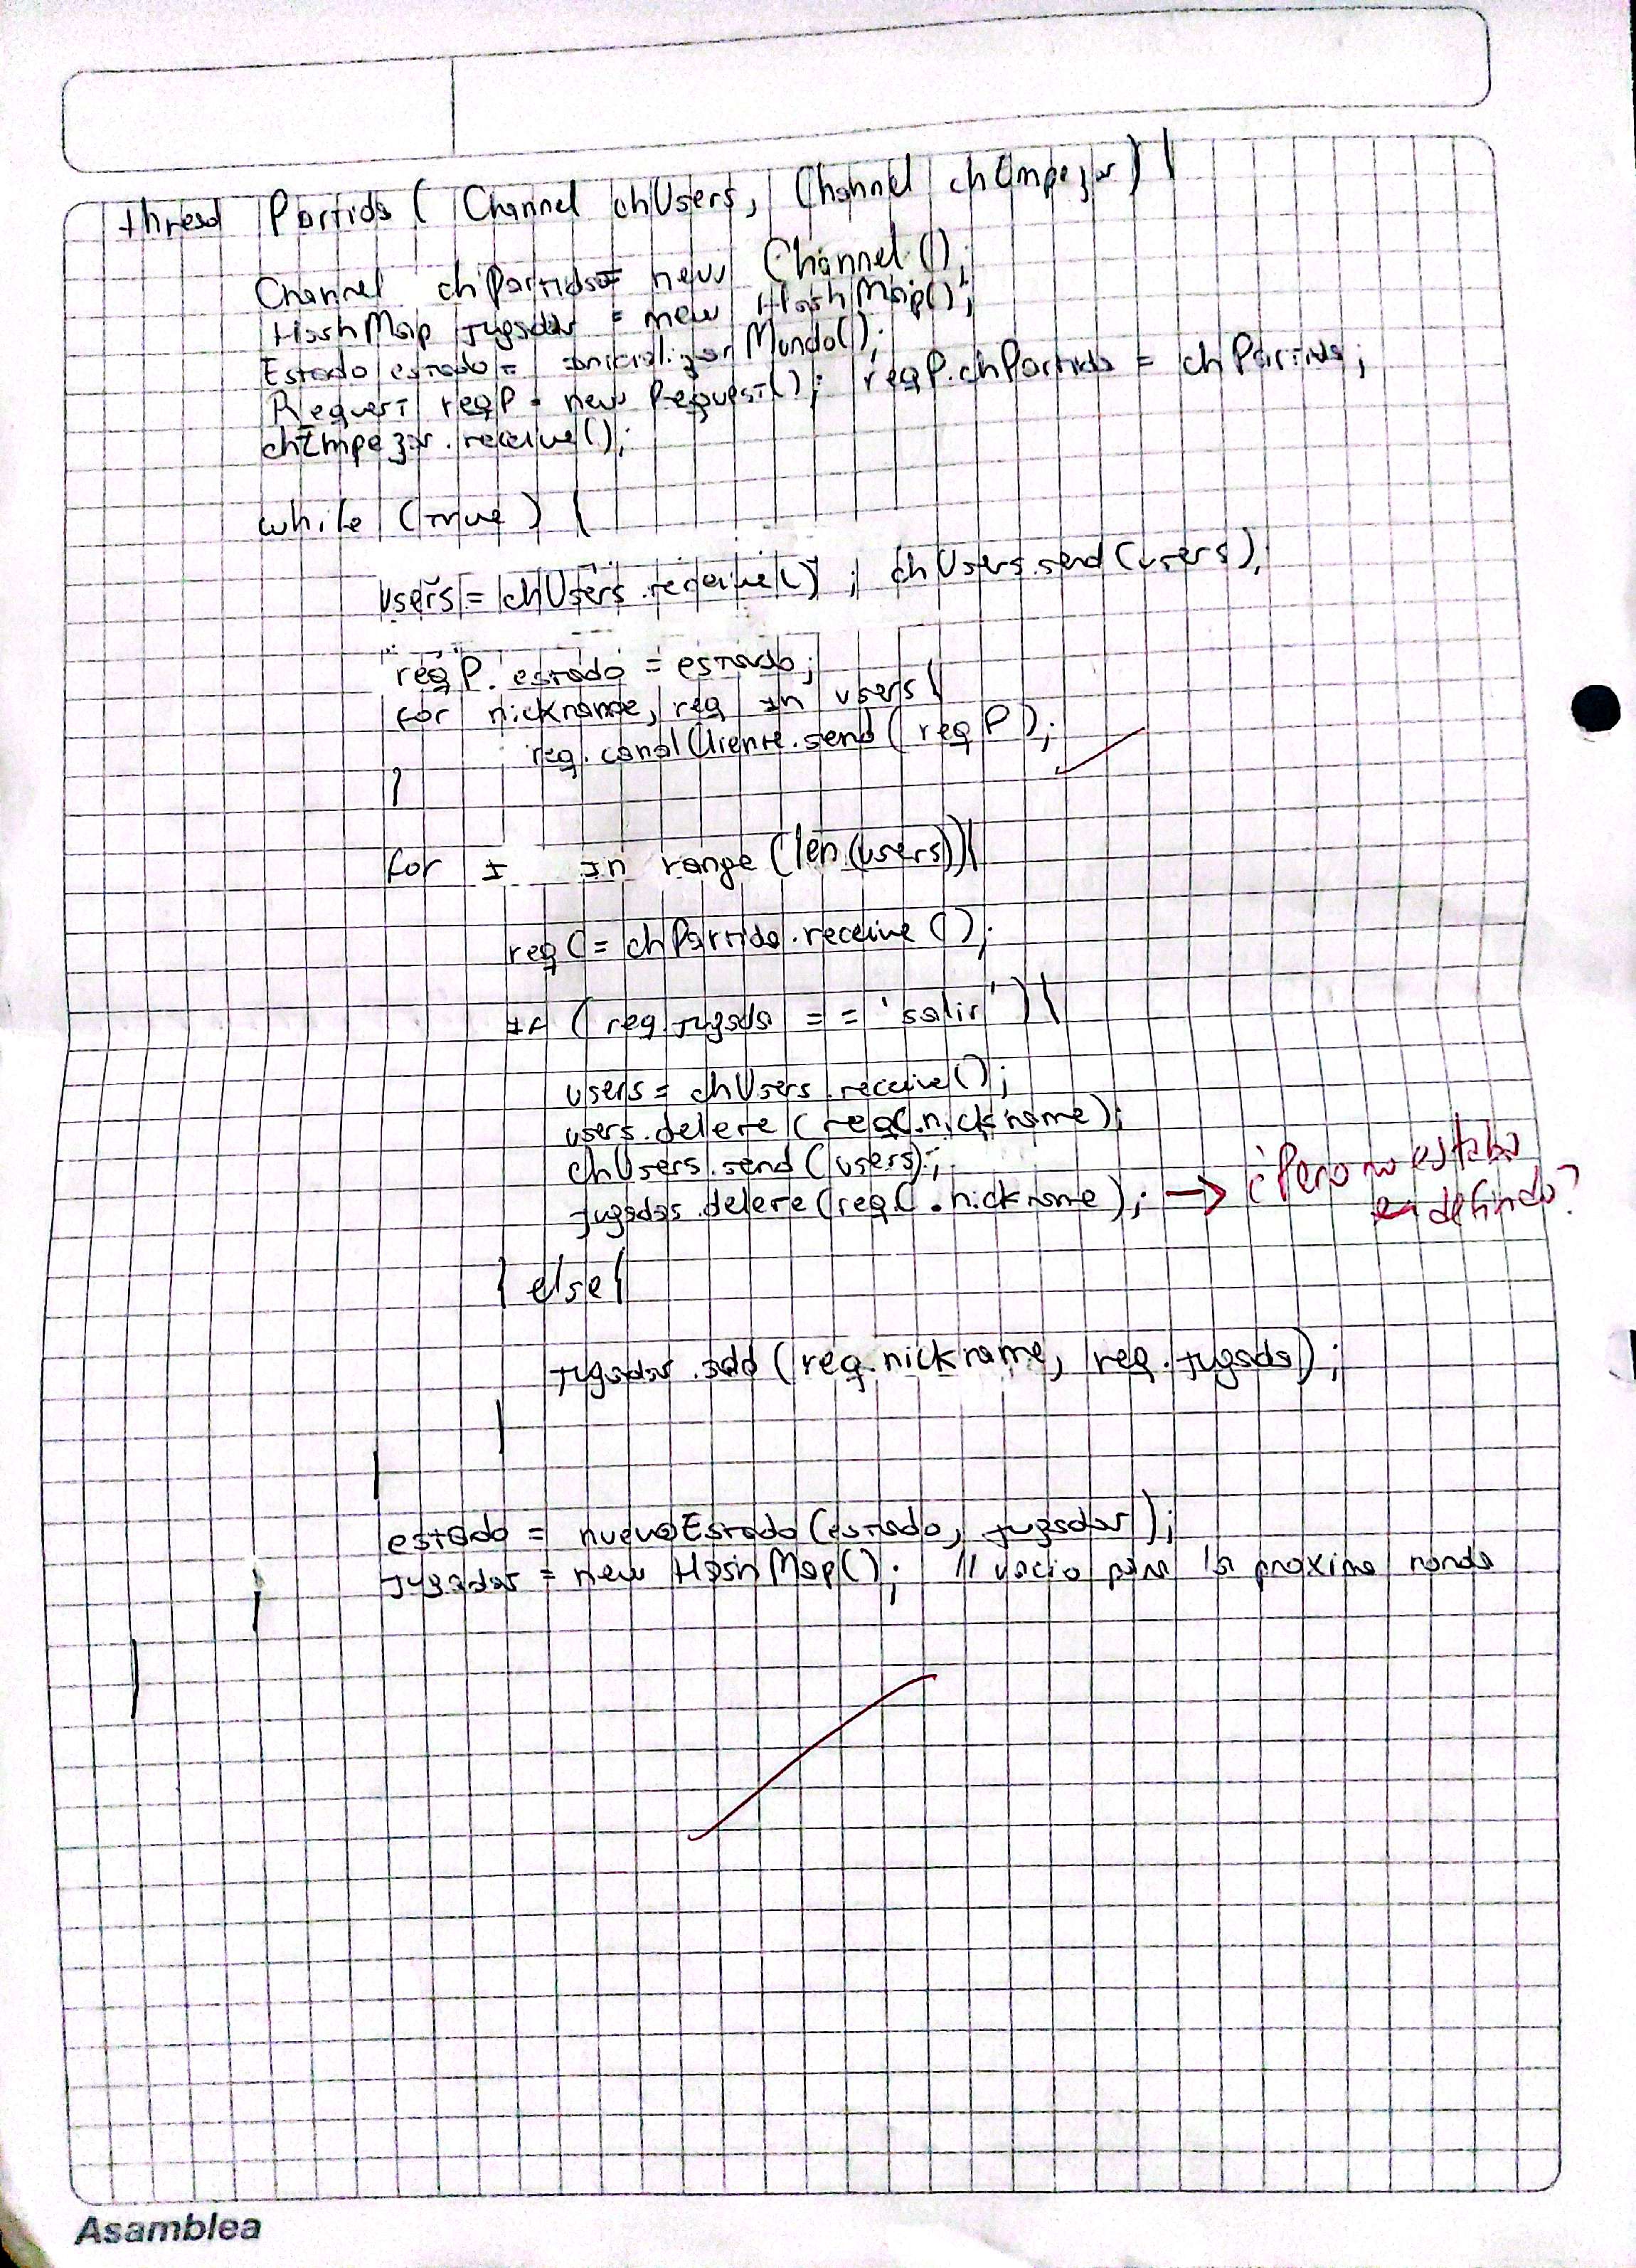 thread Partida ( Channel chUsers, Channel chEmpezar ) {
Channel chPartida = new Channel();
HashMap jugadas = new HashMap();
Estado estado = inicializarMundo();
Request reqP = new Request(); reqP.chPartida = chPartida;
chEmpezar.receive();
while (true) {
users = chUsers.receive() ; chUsers.send(users);
reqP.estado = estado;
for nickname, req in users {
req.canalCliente.send( reqP );
}
for i in range (len(users)) {
reqC = chPartida.receive();
if ( req.jugada == 'salir' ) {
users = chUsers.receive();
users.delete (reqC.nickname);
chUsers.send (users);
jugadas.delete(reqC.nickname); → ¿Pero no estaba
definido?
} else {
jugadas.add (req.nickname, req.jugada);
}
}
estado = nuevoEstado(estado, jugadas);
jugadas = new HashMap(); // vacio para la proxima ronda
}
}
Asamblea